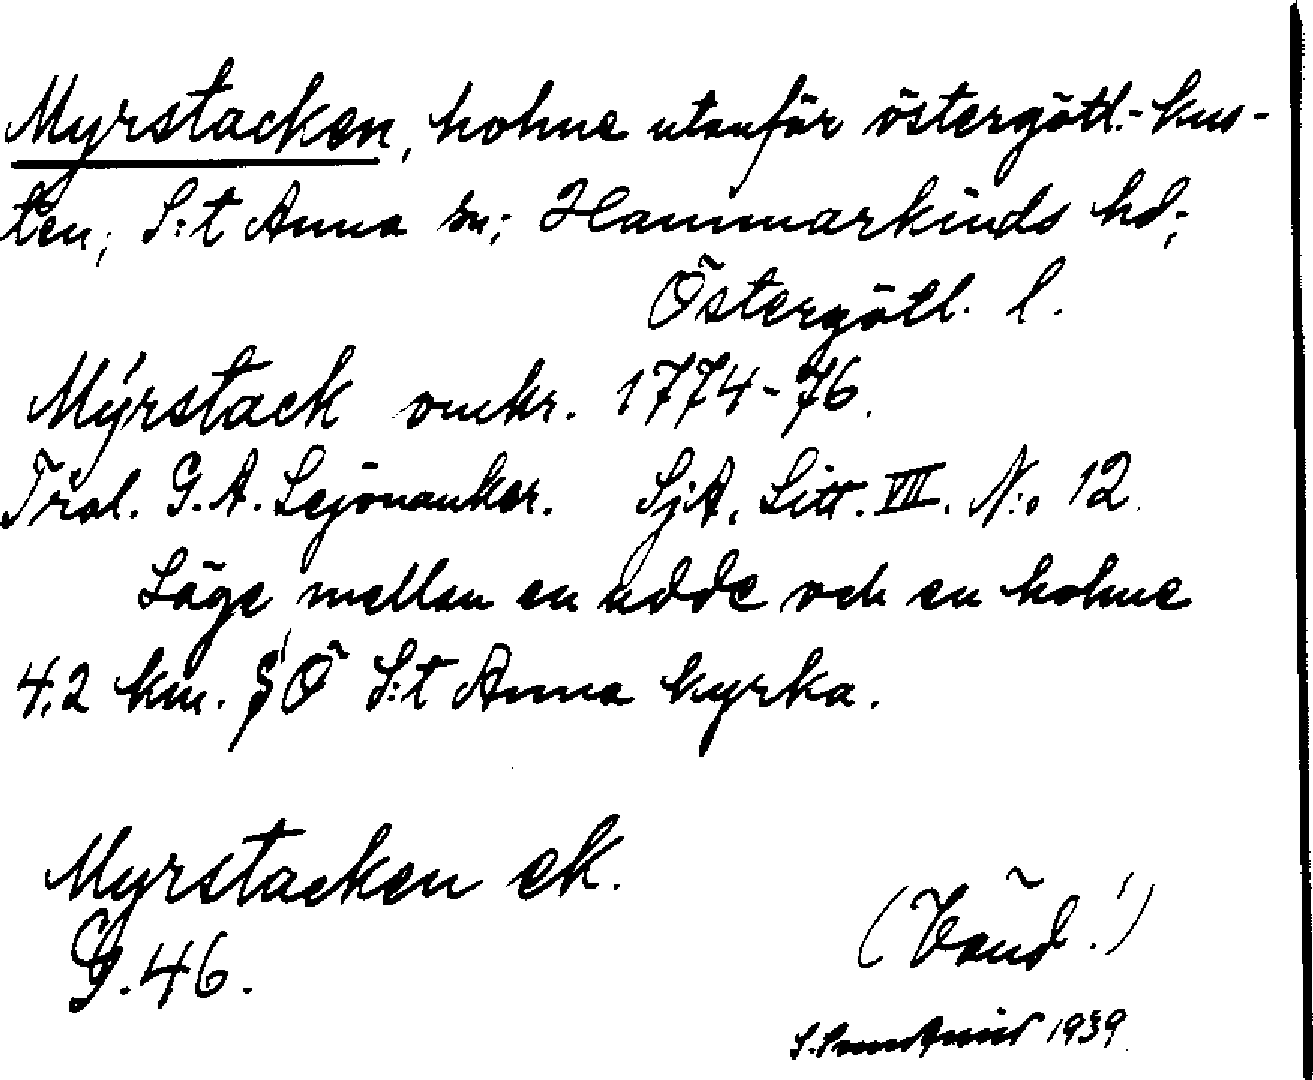 Myrstacken, holme utanför östergötl.-kus-
ten; S:t Anna sn; Hammarkinds hd;
Östergötl. l.
Mýrstack omkr. 1774-76.
Trol. G. A. Lejonanker. SjA. Litt. VIII. N:o 12.
Läge mellan en udde och en holme
4,2 km. SÖ S:t Anna kyrka.
Myrstacken ek.
G. 46.
(Vänd!)
1939